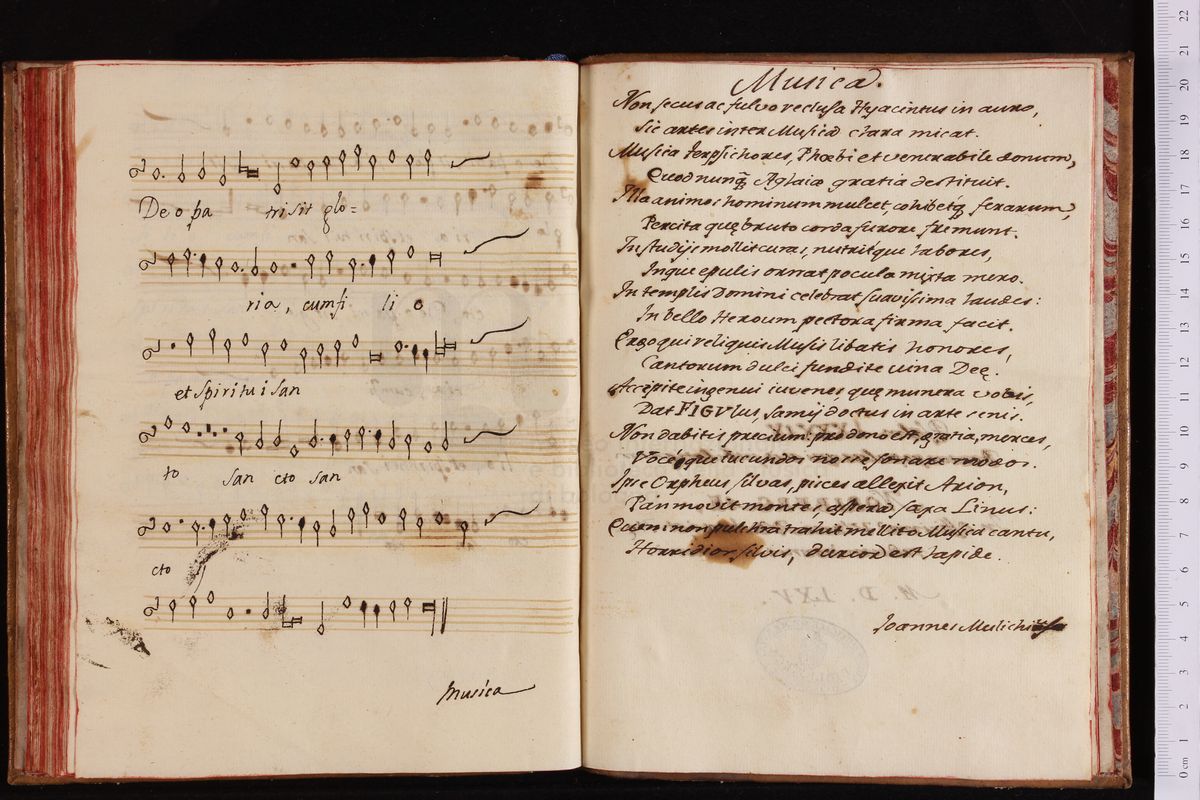 De o pa tris sit glo=
ria, cum fi li o
et spiritu i san
to san cto san
cto
Musica
Musica.
Non secus ac fulvo reclusa Hyacintus in auro,
Sic artes inter Musica clara micat.
Musica Terpsichores, Phœbi et venerabile donum,
Quod nunq̃ Aglaiæ gratia destituit.
Illa animos hominum mulcet, cohibetq ferarum,
Percita quę bruto corda furore fremunt.
In studijs mollit curas, nutritque labores,
Inque epulis ornat pocula mixta mero.
In templis Domini celebrat suavissima laudes:
In bello Heroum pectora firma facit.
Ergo qui reliquis Musis libatis honores,
Cantorum dulci fundite vina Deę.
Accipite ingenui iuvenes quę munera vobis,
Dat FIGVlus, samij doctus in arte senis.
Non dabitis precium: pro dono est gratia, merces,
Voce que iucundos nosse sonare modos.
Ipse Orpheus silvas, pisces allexit Arion,
Pan movit montes, aspera saxa Linus:
Quem non pulchra trahit mellito Musica cantu,
Horridior silvis, durior est lapide.
M. D. LXV.
Ioannes
0 cm 1 2 3 4 5 6 7 8 9 10 11 12 13 14 15 16 17 18 19 20 21 22